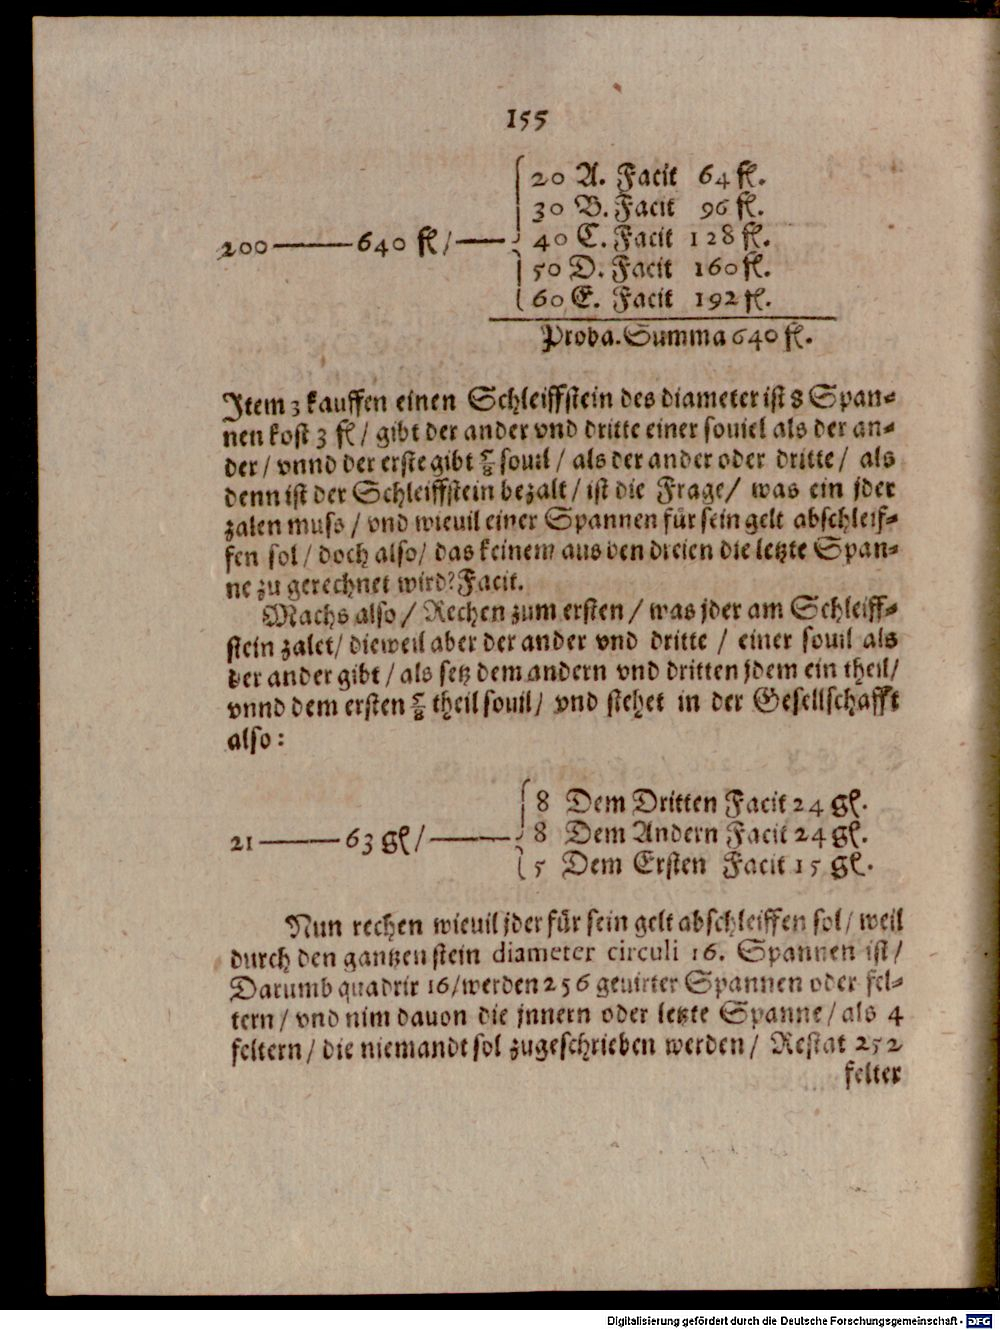 155
20 A. Facit 64 fl.
30 B. Facit 96 fl.
200 — 640 fl/ — 40 C. Facit 128 fl.
50 D. Facit 160 fl.
60 E. Facit 192 fl.
Proba. Summa 640 fl.
Item 3 kauffen einen Schleiffstein des diameter ist 8 Span-
nen kost 3 fl/ gibt der ander vnd dritte einer souiel als der an-
der/ vnnd der erste gibt 5/8 souil/ als der ander oder dritte/ als
denn ist der Schleiffstein bezalt/ ist die Frage/ was ein jder
zalen muss/ vnd wieuil einer Spannen für sein gelt abschleif-
fen sol/ doch also/ das keinem aus den dreien die letzte Span-
ne zu gerechnet wird? Facit.
Machs also/ Rechen zum ersten/ was jder am Schleiff-
stein zalet/ dieweil aber der ander vnd dritte/ einer souil als
der ander gibt/ als setz dem andern vnd dritten jdem ein theil/
vnnd dem ersten 5/8 theil souil/ vnd stehet in der Gesellschafft
also:
8 Dem Dritten Facit 24 gl.
21 — 63 gl/ — 8 Dem Andern Facit 24 gl.
5 Dem Ersten Facit 15 gl.
Nun rechen wieuil jder für sein gelt abschleiffen sol/ weil
durch den gantzen stein diameter circuli 16. Spannen ist/
Darumb quadrir 16/ werden 256 geuirter Spannen oder fel-
tern/ vnd nim dauon die jnnern oder letzte Spanne/ als 4
feltern/ die niemandt sol zugeschrieben werden/ Restat 252
felter
Digitalisierung gefördert durch die Deutsche Forschungsgemeinschaft - DFG